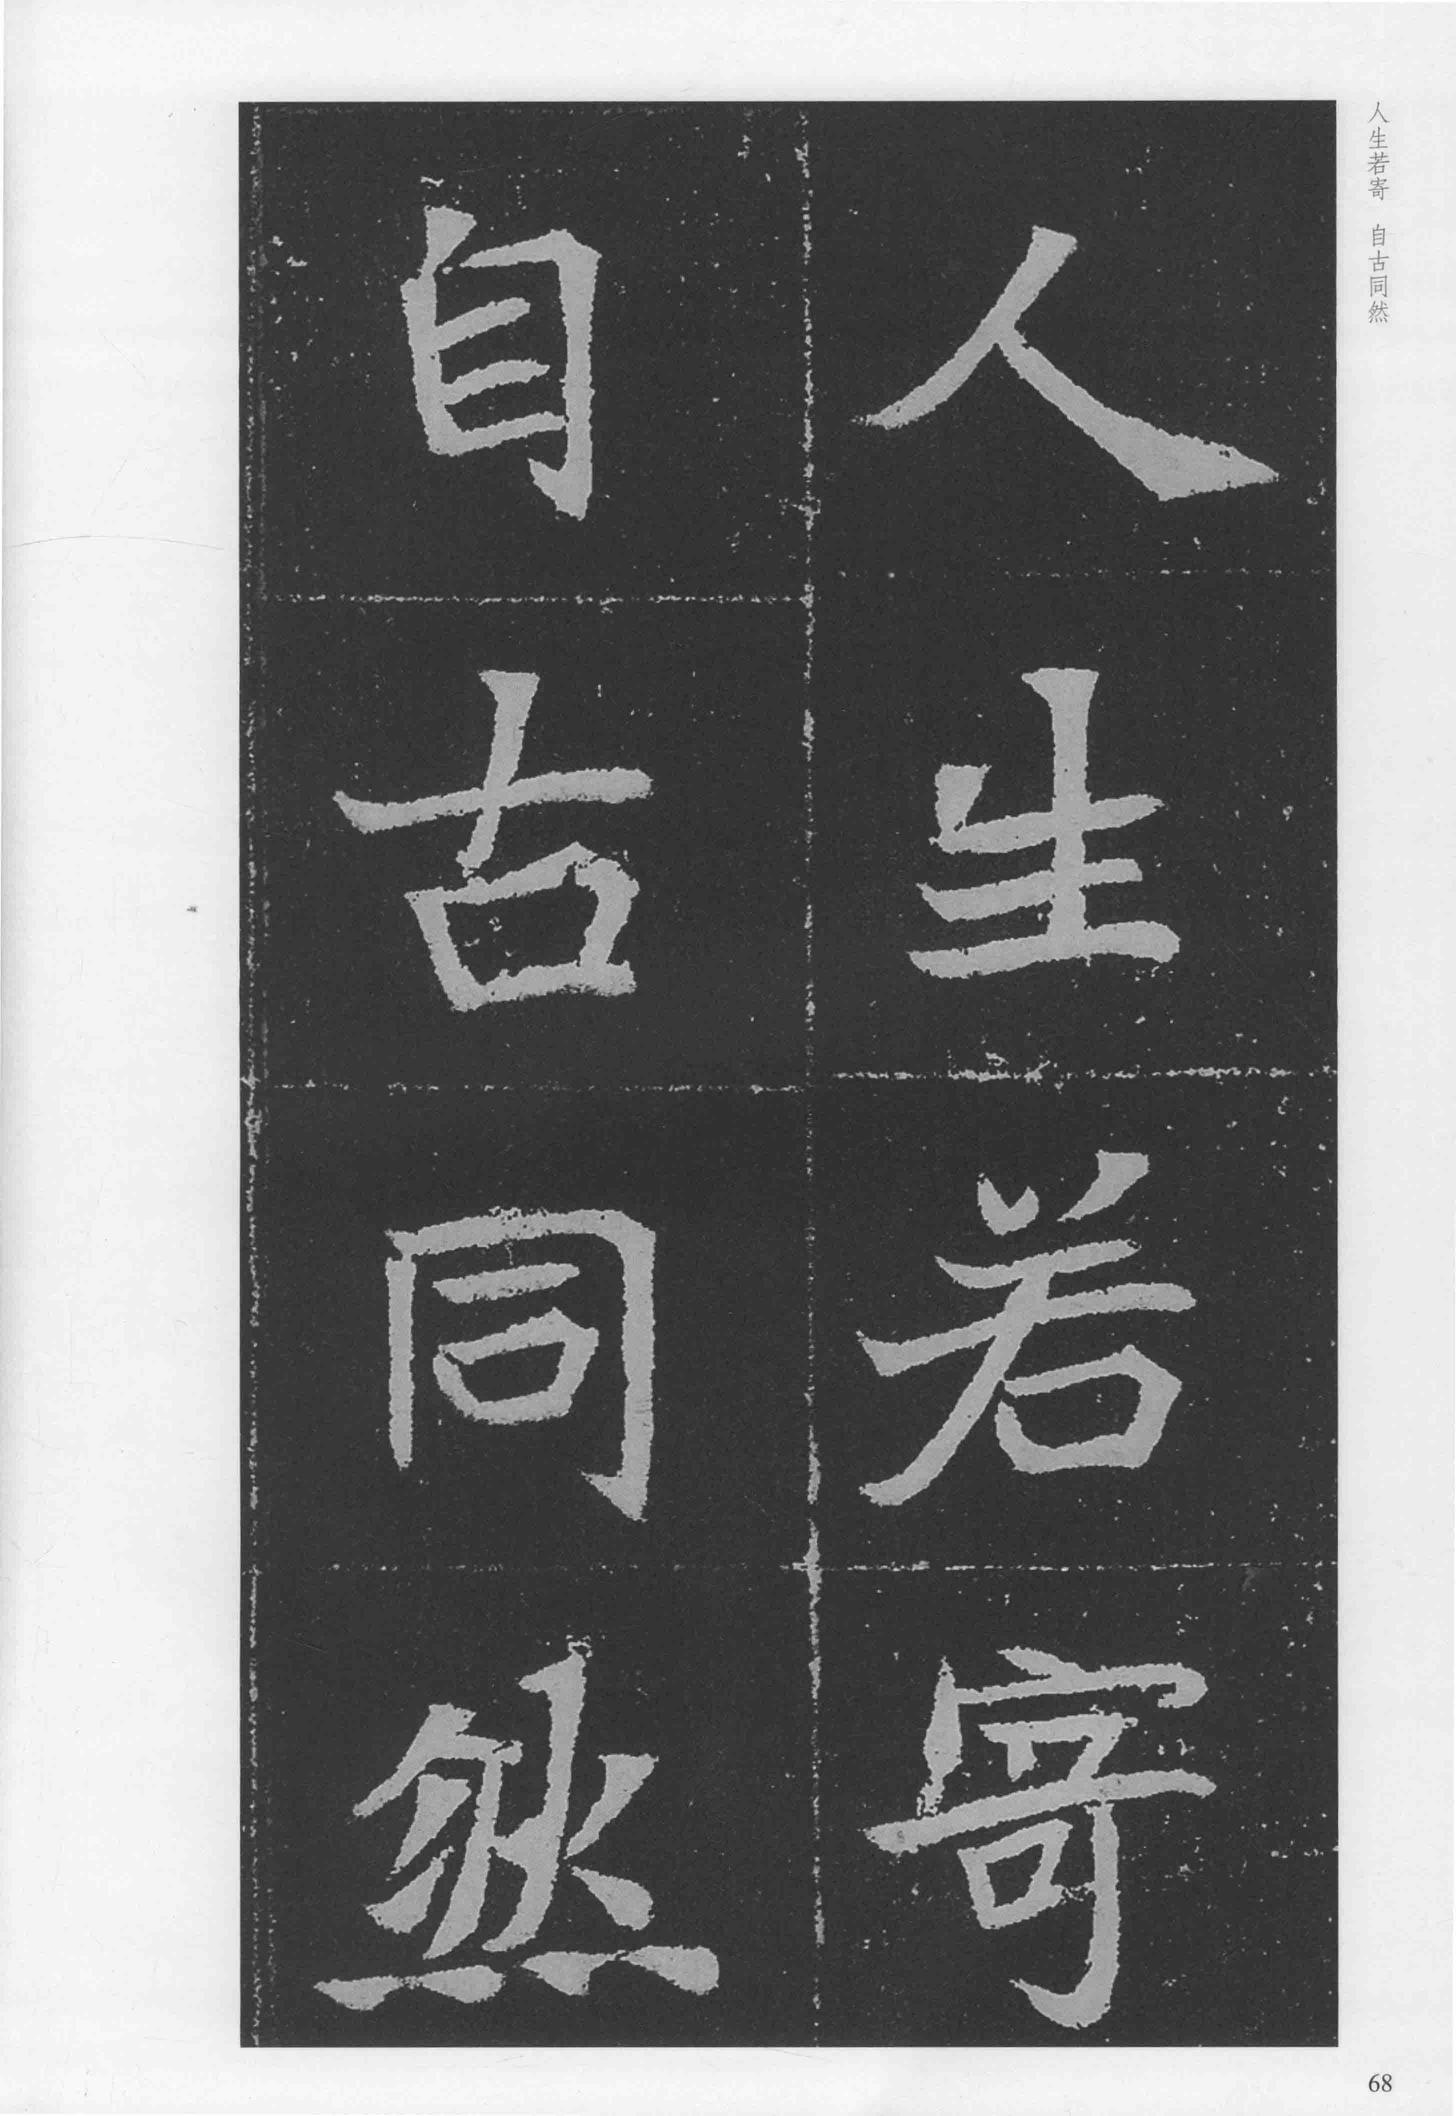 人生若寄 自古同然
人生若寄
自古同然
68